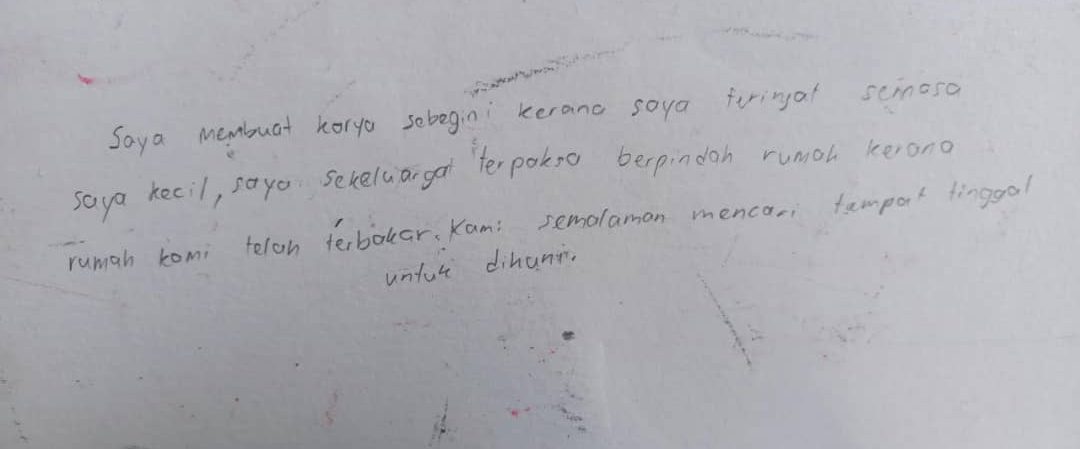 Saya membuat karya sebegini kerana saya teringat semasa
saya kecil, saya sekeluarga terpaksa berpindah rumah kerana
rumah kami telah terbakar. Kami semalaman mencari tempat tinggal
untuk dihuni.